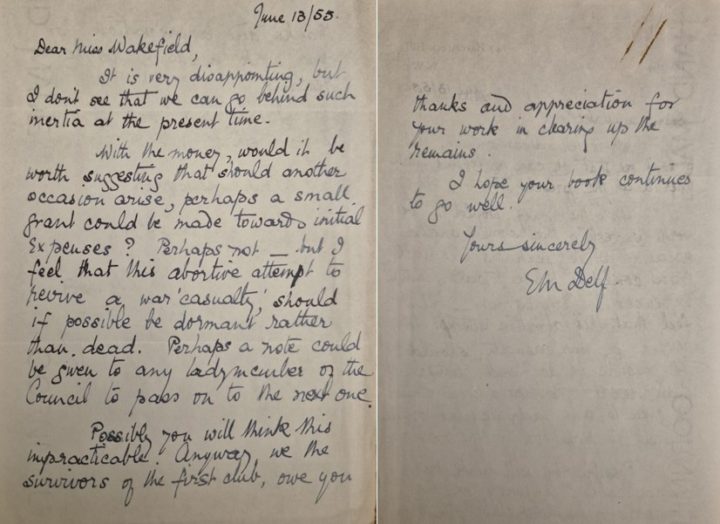 June 13/55.
Dear Miss Wakefield,
It is very disappointing, but
I don't see that we can go behind such
inertia at the present time.
With the money, would it be
worth suggesting that should another
occasion arise, perhaps a small
grant could be made towards initial
Expenses? Perhaps not — but I
feel that this abortive attempt to
revive a war 'casualty' should
if possible be dormant rather
than dead. Perhaps a note could
be given to any lady member of the
Council to pass on to the next one.
Possibly you will think this
impracticable. Anyway, we the
survivors of the first club, owe you
thanks and appreciation for
your work in clearing up the
remains.
I hope your book continues
to go well.
Yours sincerely
EM Delf.